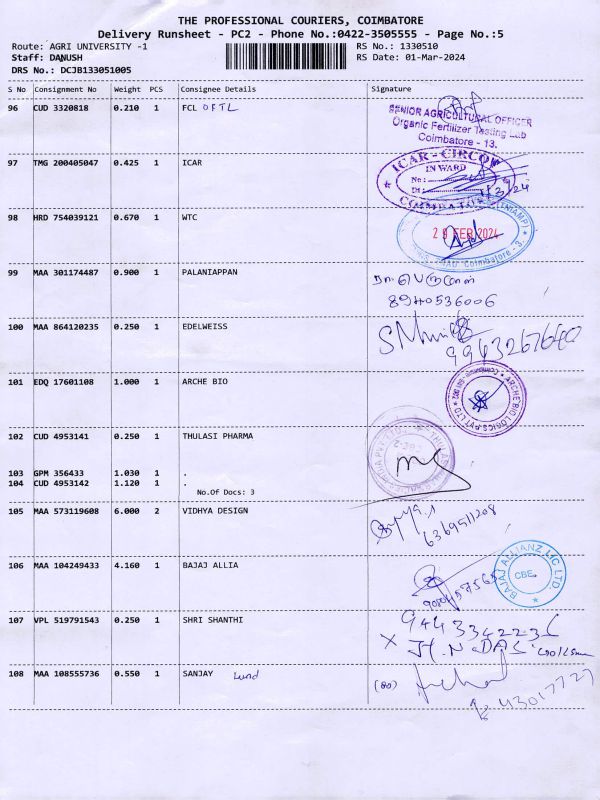 THE PROFESSIONAL COURIERS, COIMBATORE
Delivery Runsheet - PC2 - Phone No.:0422-3505555 - Page No.:5
Route: AGRI UNIVERSITY -1 RS No.: 1330510
Staff: DANUSH RS Date: 01-Mar-2024
DRS No.: DCJB133051005
S No Consignment No Weight PCS Consignee Details Signature
96 CUD 3320818 0.210 1 FCL OFTL
SENIOR AGRICULTURAL OFFICER
Organic Fertilizer Testing Lab
Coimbatore - 13.
97 TMG 200405047 0.425 1 ICAR
ICAR-CIRCOT
INWARD
No:
Dt:
COIMBATORE
98 HRD 754039121 0.670 1 WTC
(NIAMP)
29 FEB 2024
TNAU Coimbatore - 3.
99 MAA 301174487 0.900 1 PALANIAPPAN
8940536006
100 MAA 864120235 0.250 1 EDELWEISS
9943267640
101 EDQ 17601108 1.000 1 ARCHE BIO
ARCHE BIO LOGICS PVT LTD
102 CUD 4953141 0.250 1 THULASI PHARMA
103 GPM 356433 1.030 1 .
104 CUD 4953142 1.120 1 .
No.Of Docs: 3
105 MAA 573119608 6.000 2 VIDHYA DESIGN
6369511208
106 MAA 104249433 4.160 1 BAJAJ ALLIA
BAJAJ ALLIANZ LIC LTD
CBE.
107 VPL 519791543 0.250 1 SHRI SHANTHI
9443342236
108 MAA 108555736 0.550 1 SANJAY